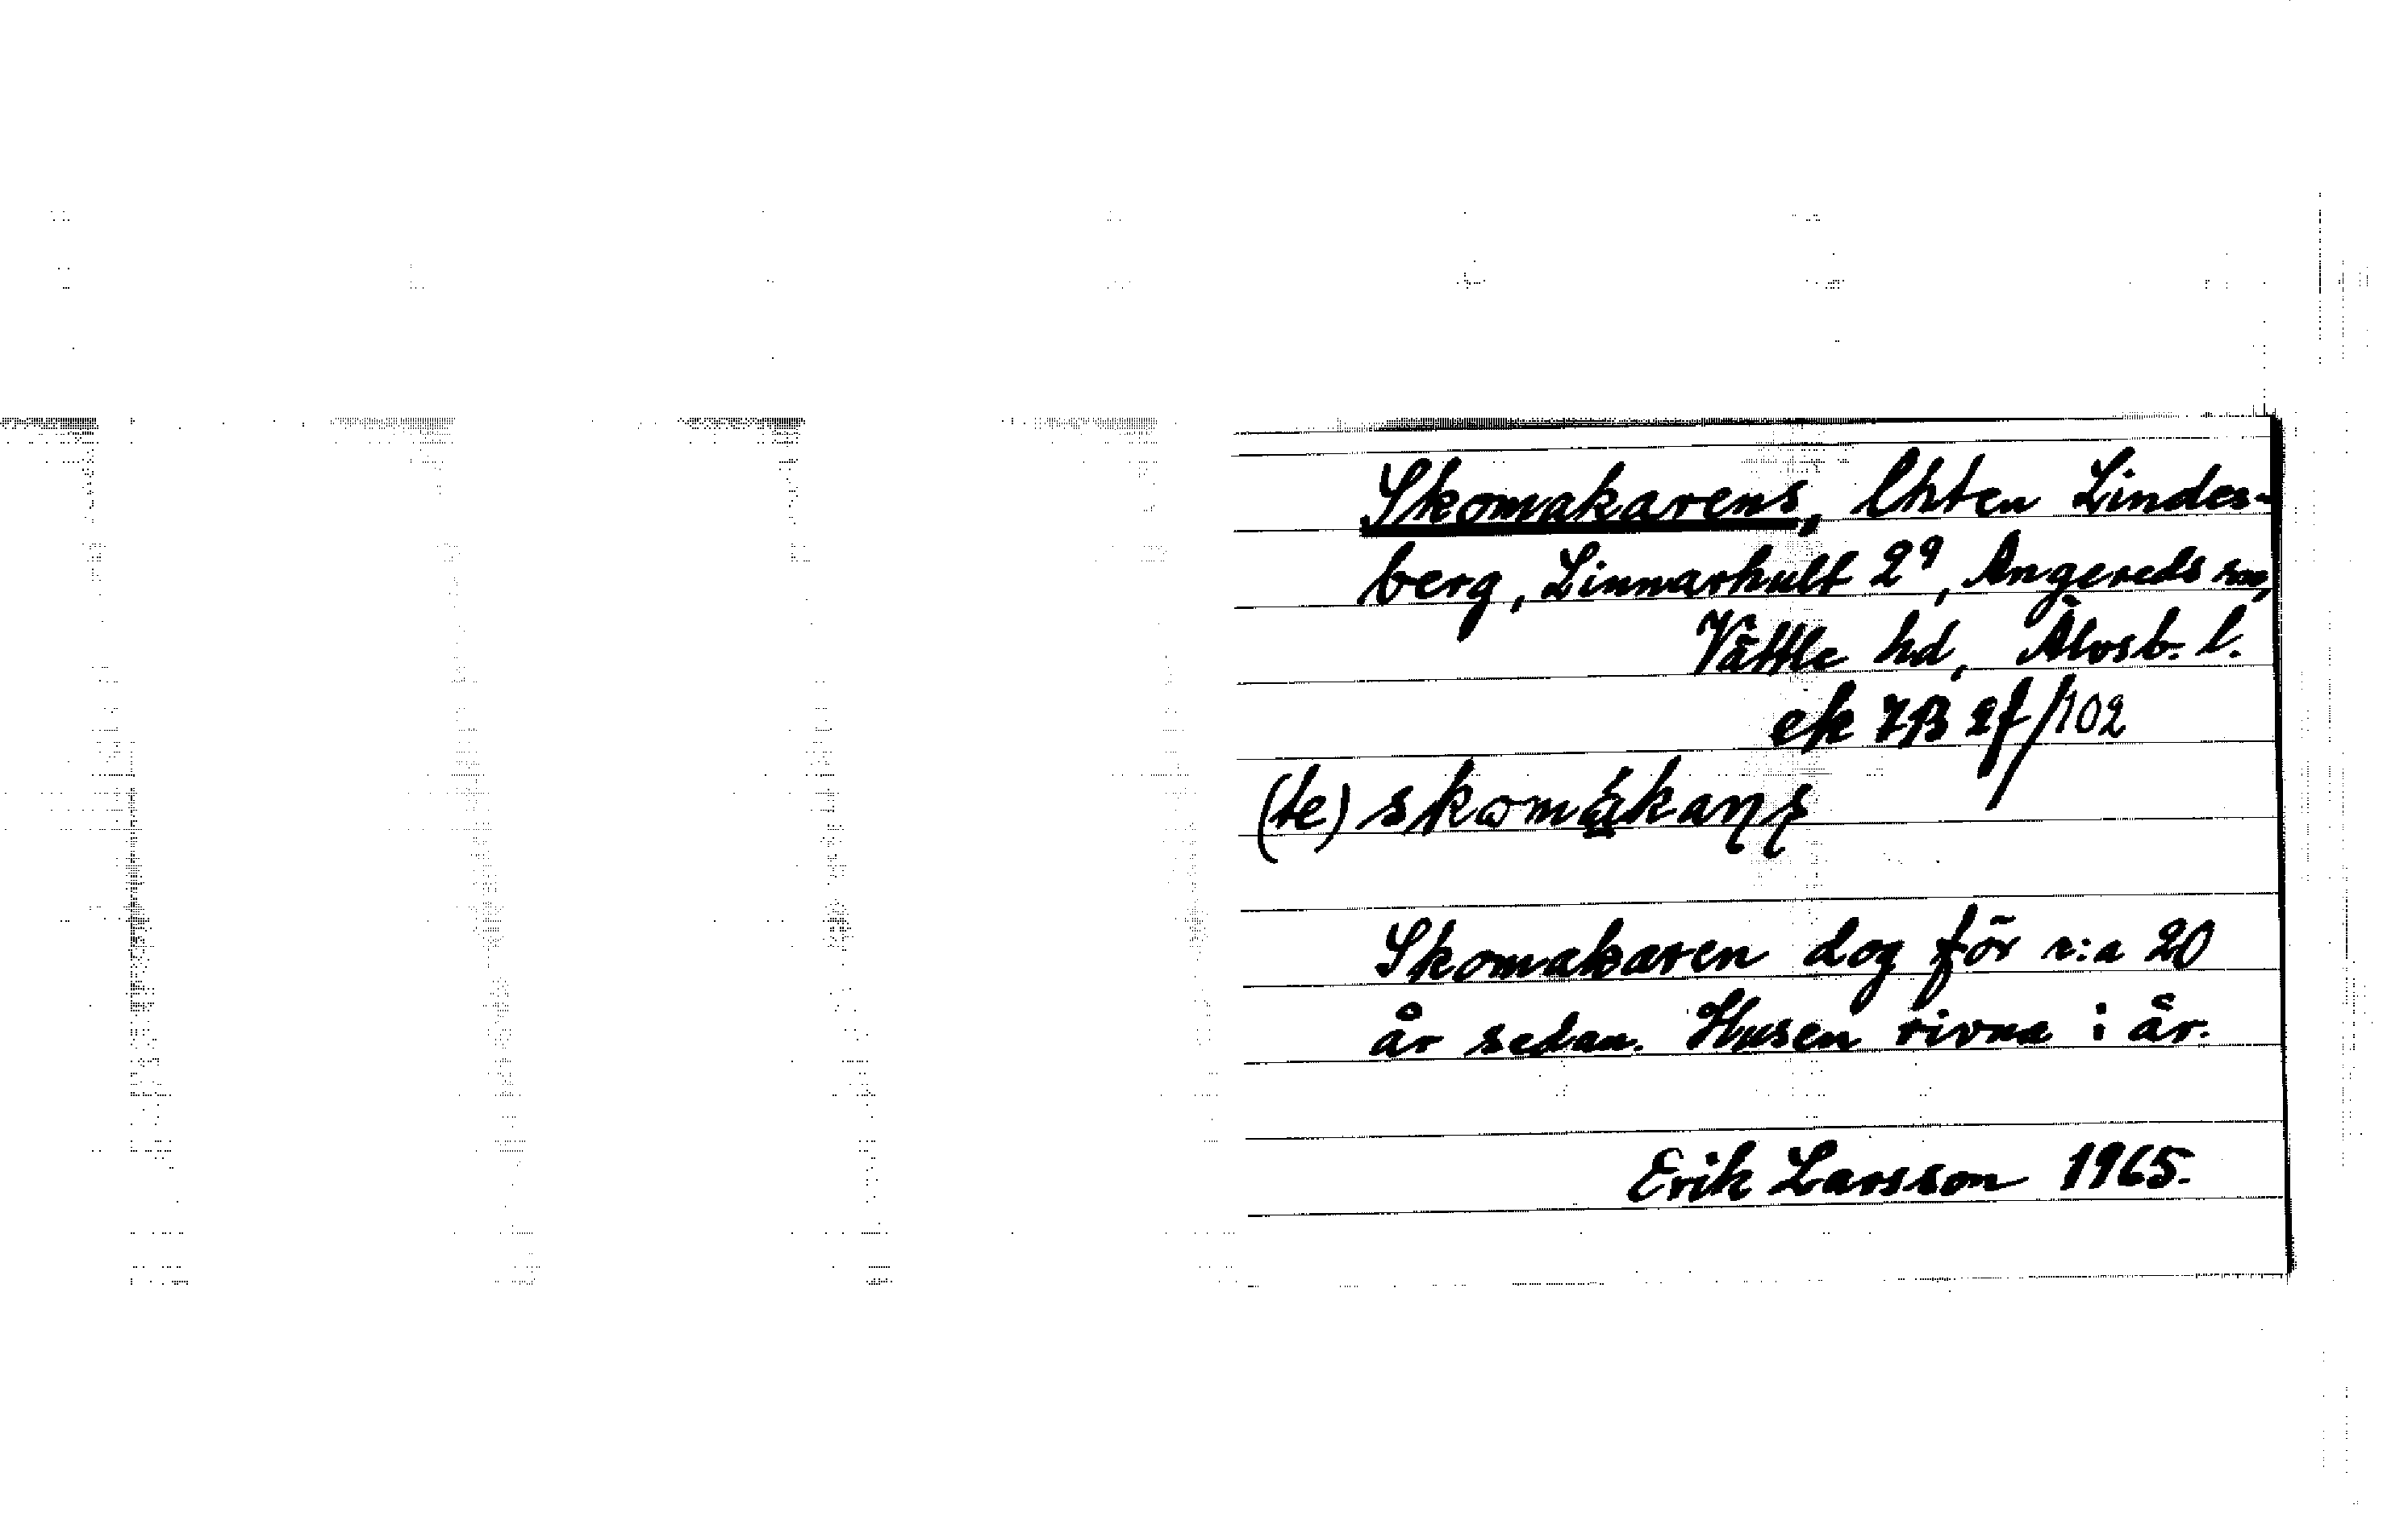 Skomakarens, lhten Lindes-
berg, Linnarhult 2⁹, Angereds sn,
Vättle hd, Älvsb. l.
ek 7B 2f/102
(te) skomakaņş
Skomakaren dog för c:a 20
år sedan. Husen rivna i år.
Erik Larsson 1965.